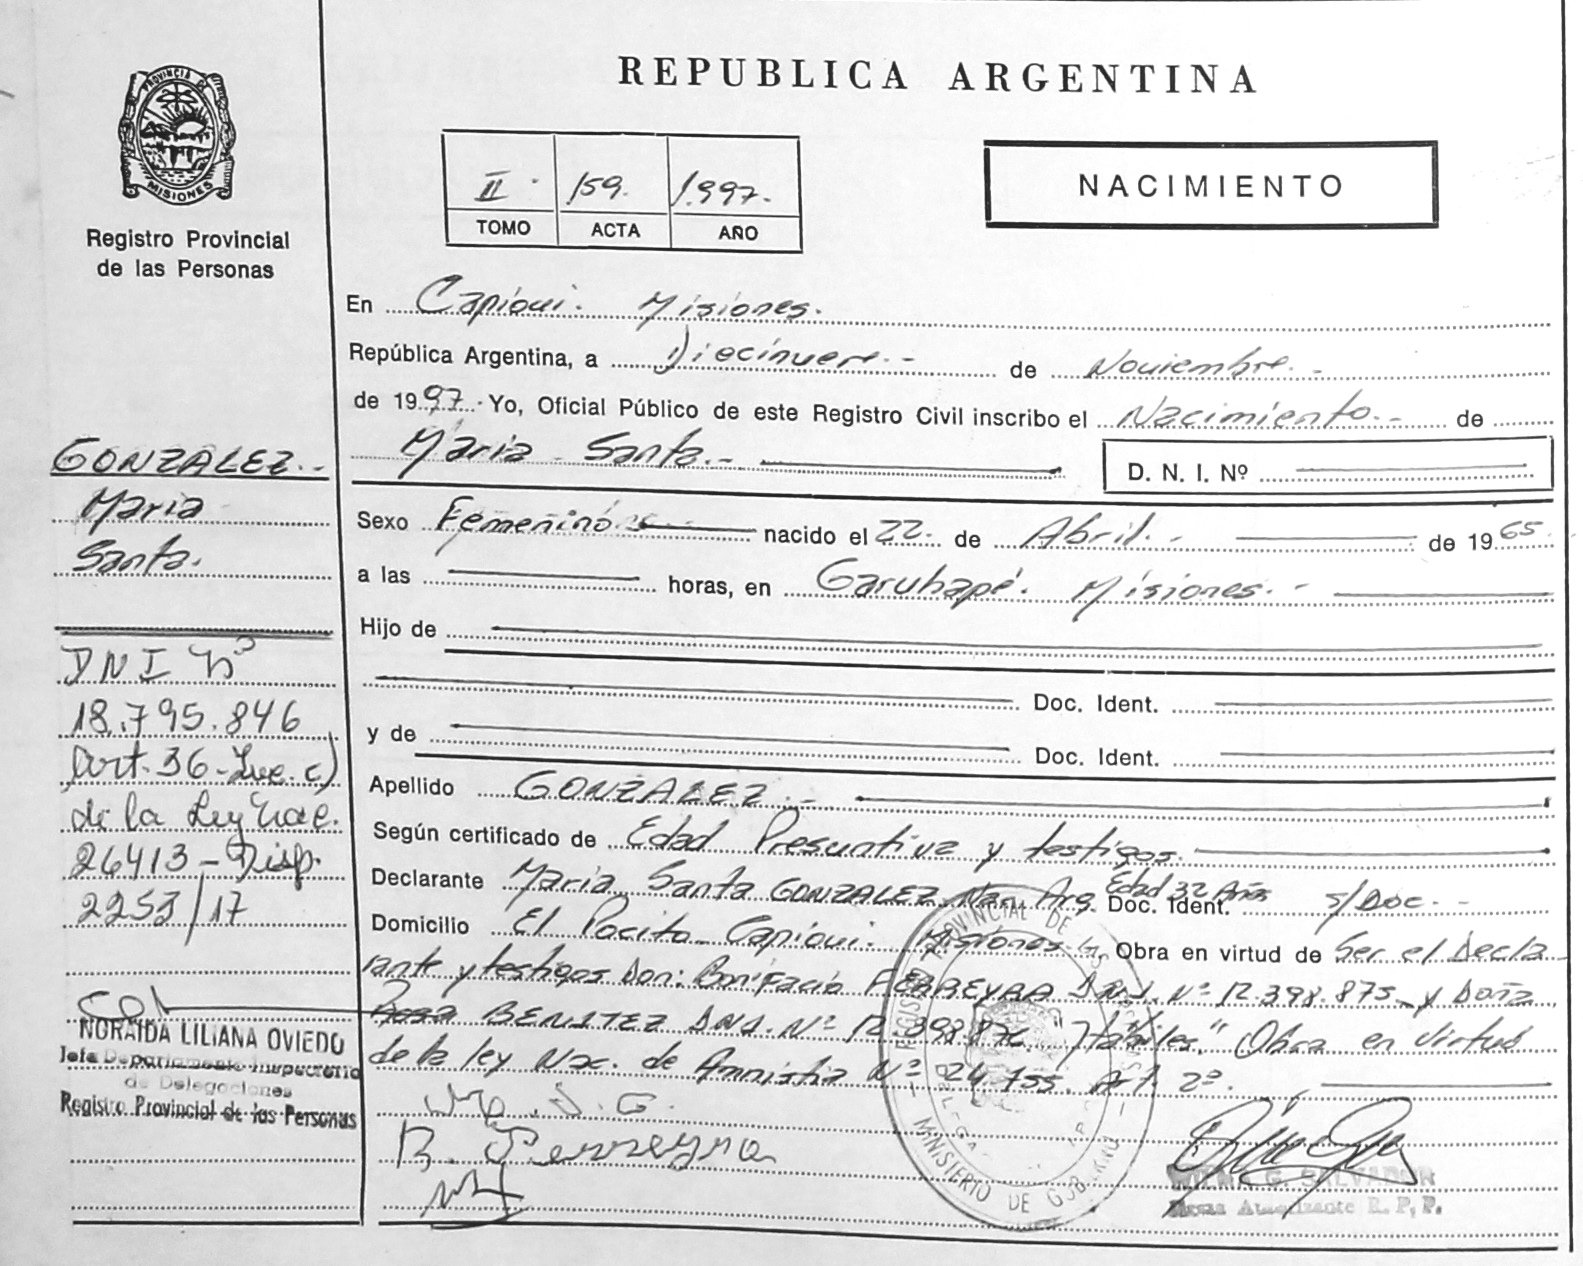 REPUBLICA ARGENTINA
PROVINCIA DE
MISIONES
Registro Provincial
de las Personas
II. 159. 1.997.
TOMO ACTA AÑO
NACIMIENTO
En Capioui. Misiones.
República Argentina, a Diecinueve.- de Noviembre.-
de 1997.- Yo, Oficial Público de este Registro Civil inscribo el Nacimiento.- de
Maria Santa.-
D. N. I. Nº
Sexo Femenino nacido el 22. de Abril.- de 1965.
a las horas, en Garuhapé. Misiones.-
Hijo de
Doc. Ident.
y de
Doc. Ident.
Apellido GONZALEZ.-
Según certificado de Edad Presuntiva y testigos.
Declarante Maria Santa GONZALEZ. Nac. Arg. Edad 32 Años Doc. Ident. s/Doc.-
Domicilio El Pocito Capioui. Misiones Obra en virtud de Ser el Decla
rante y testigos Don: Bonifacio FERREYRA D.N.I. Nº 12.398.875 y Doña
Rosa BENITEZ DNI. Nº "Hábiles." Obra en virtud
de la ley Nac. de Amnistia Nº 24.755. Art. 2º.
M. S. G.
B. Ferreyra
GONZALEZ.-
Maria
Santa.
DNI Nº
18.795.846
Art. 36-Inc. c)
de la Ley Nac.
26413-Disp.
2253/17
NORAIDA LILIANA OVIEDO
Jefa Departamento Inspectoria
de Delegaciones
Registro Provincial de las Personas
REGISTRO PROVINCIAL DE
MINISTERIO DE GOBIERNO
WILMA G. SALVADOR
Firma Autorizante R. P. P.